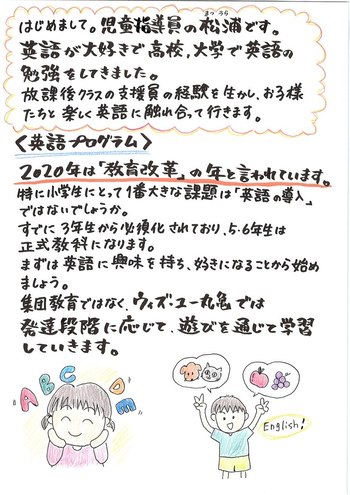 はじめまして。児童指導員の松浦です。
まつうら
英語が大好きで高校,大学で英語の
勉強をしてきました。
放課後クラスの支援員の経験を生かし、お子様
たちと楽しく英語に触れ合って行きます。
〈英語プログラム〉
2020年は「教育改革」の年と言われています。
特に小学生にとって1番大きな課題は「英語の導入」
ではないでしょうか。
すでに3年生から必須化されており、5・6年生は
正式教科になります。
まずは英語に興味を持ち、好きになることから始め
ましょう。
集団教育ではなく、ウィズ・ユー丸亀では
発達段階に応じて、遊びを通じて学習
していきます。
ABCDE
English!